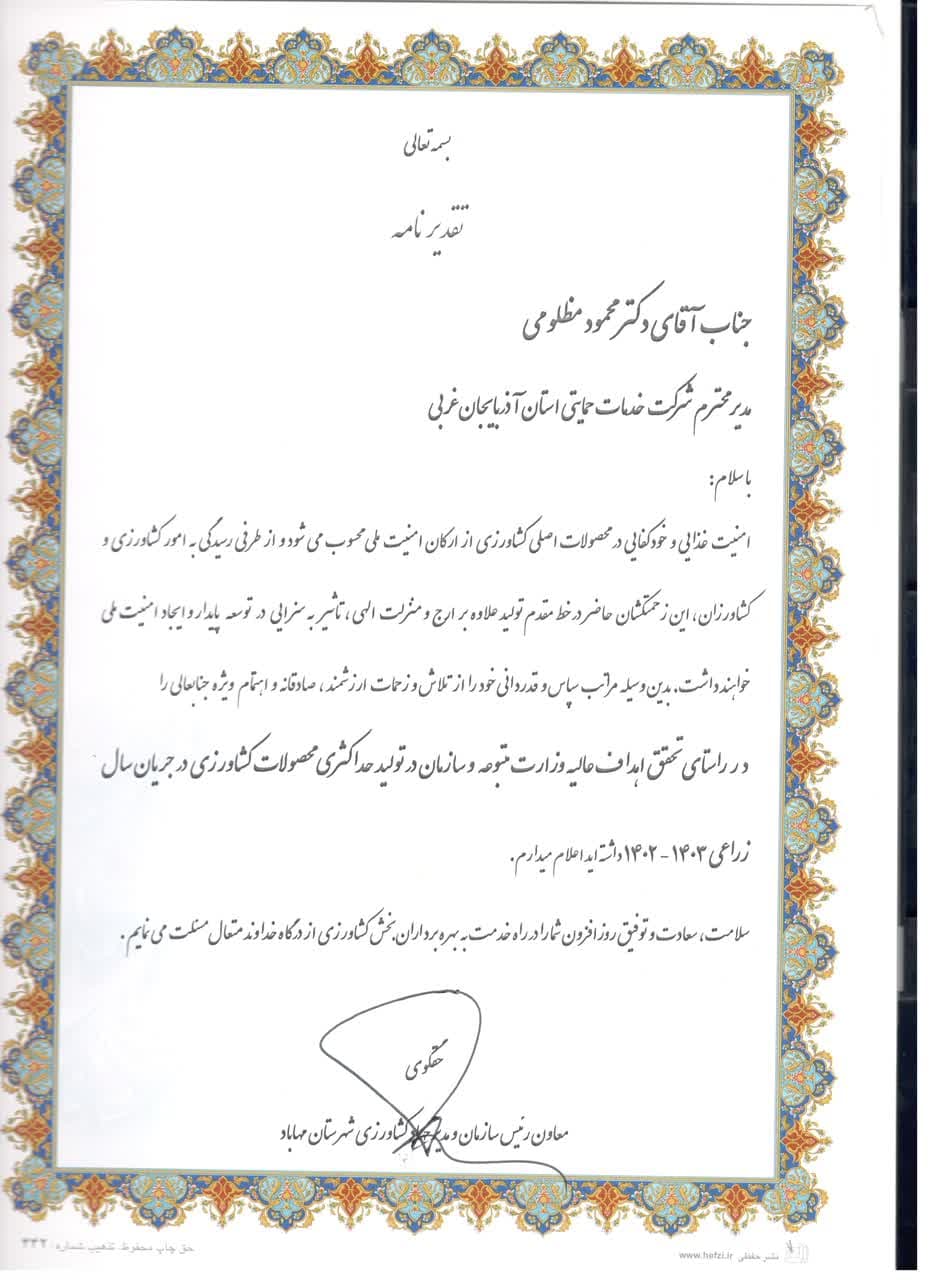 بسمه تعالی
تقدیر نامه
جناب آقای دکتر محمود مظلومی
مدیر محترم شرکت خدمات حمایتی استان آذربایجان غربی
با سلام:
امنیت غذایی و خودکفایی در محصولات اصلی کشاورزی از ارکان امنیت ملی محسوب می شود و از طرفی رسیدگی به امور کشاورزی و
کشاورزان، این زحمتکشان حاضر در خط مقدم تولید علاوه بر ارج و منزلت الهی، تاثیر به سزایی در توسعه پایدار و ایجاد امنیت ملی
خواهند داشت. بدین وسیله مراتب سپاس و قدردانی خود را از تلاش و زحمات ارزشمند، صادقانه و اهتمام ویژه جنابعالی را
در راستای تحقق اهداف عالیه وزارت متبوعه و سازمان در تولید حداکثری محصولات کشاورزی در جریان سال
زراعی ۱۴۰۳ - ۱۴۰۲ داشته اید اعلام میدارم.
سلامت، سعادت و توفیق روز افزون شما را در راه خدمت به بهره برداران بخش کشاورزی از درگاه خداوند متعال مسئلت می نمایم.
حقگوی
معاون رئیس سازمان و مدیر جهاد کشاورزی شهرستان مهاباد
حق چاپ محفوظ. تذهیب شماره: ۳۴۲
نشر حفظی www.hefzi.ir